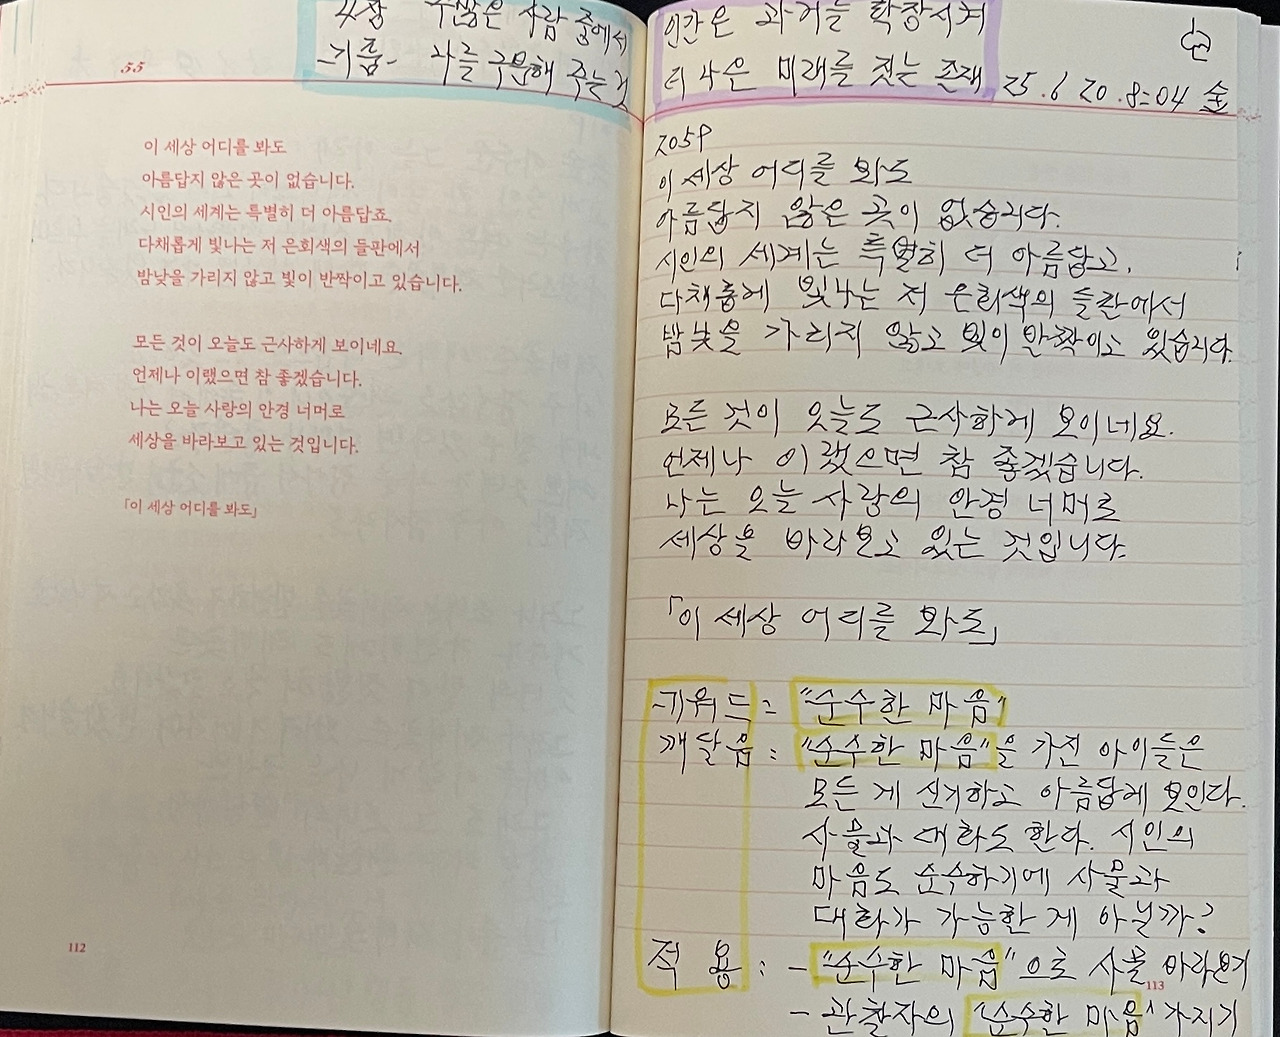 4장 수많은 사람 중에서
-기품- 나를 구분해 주는 것
55
이 세상 어디를 봐도
아름답지 않은 곳이 없습니다.
시인의 세계는 특별히 더 아름답죠.
다채롭게 빛나는 저 은회색의 들판에서
밤낮을 가리지 않고 빛이 반짝이고 있습니다.
모든 것이 오늘도 근사하게 보이네요.
언제나 이랬으면 참 좋겠습니다.
나는 오늘 사랑의 안경 너머로
세상을 바라보고 있는 것입니다.
「이 세상 어디를 봐도」
112
인간은 과거를 확장시켜
더 나은 미래를 짓는 존재
25.6 20.8:04 金
205P
이 세상 어디를 봐도
아름답지 않은 곳이 없습니다.
시인의 세계는 특별히 더 아름답고,
다채롭게 빛나는 저 은회색의 들판에서
밤낮을 가리지 않고 빛이 반짝이고 있습니다.
모든 것이 오늘도 근사하게 보이네요.
언제나 이랬으면 참 좋겠습니다.
나는 오늘 사랑의 안경 너머로
세상을 바라보고 있는 것입니다.
「이 세상 어디를 봐도」
키워드 : "순수한 마음"
깨달음 : "순수한 마음"을 가진 아이들은
모든 게 신기하고 아름답게 보인다.
사물과 대화도 한다. 시인의
마음도 순수하기에 사물과
대화가 가능한 게 아닐까?
적 용 : - "순수한 마음"으로 사물 바라보기
113
- 관찰자의 "순수한 마음" 가지기